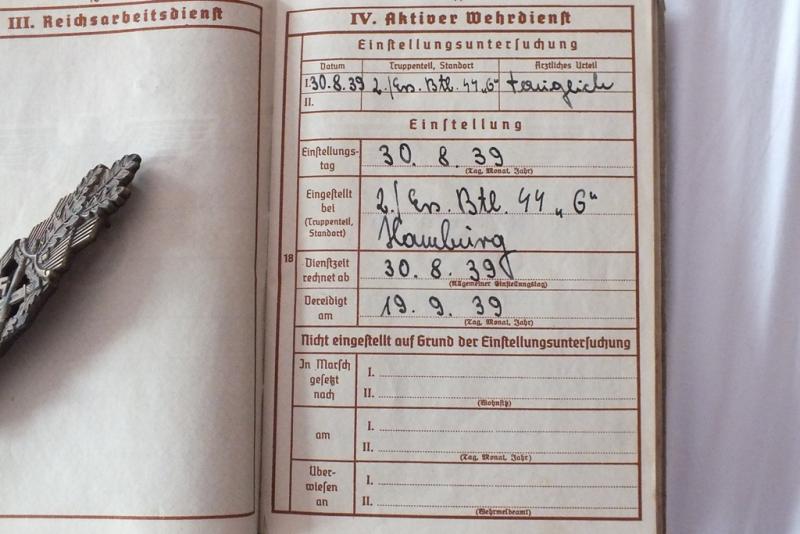 III. Reichsarbeitsdienst
IV. Aktiver Wehrdienst
Einstellungsuntersuchung
Datum Truppenteil, Standort Ärztliches Urteil
I. 30.8.39 2./Ers. Btl. 44 „G“ tauglich
II.
Einstellung
Einstellungs-
tag
30. 8. 39
(Tag, Monat, Jahr)
Eingestellt
bei
(Truppenteil,
Standort)
2./Ers. Btl. 44 „G“
Hamburg
18
Dienstzeit
rechnet ab
30. 8. 39
(Allgemeiner Einstellungstag)
Vereidigt
am
19. 9. 39
(Tag, Monat, Jahr)
Nicht eingestellt auf Grund der Einstellungsuntersuchung
In Marsch
gesetzt
nach
I.
II.
(Wohnsitz)
am
I.
II.
(Tag, Monat, Jahr)
Über-
wiesen
an
I.
II.
(Wehrmeldeamt)